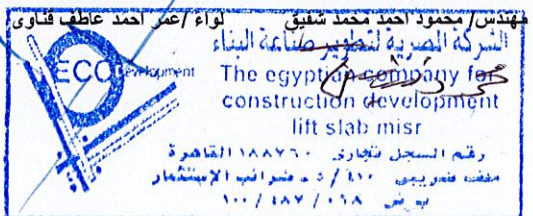 مهندس/ محمود احمد محمد شفيق لواء /عمر احمد عاطف قناوى
الشركة المصرية لتطوير صناعة البناء
ECC Development
The egyptian company for
construction development
lift slab misr
رقم السجل تجارى ١٨٨٧٦٠ القاهرة
ملف ضريبى ٤١٠ / ٥ ـ ضرائب الإستثمار
٠٦٨ / ٤٨٧ / ١٠٠